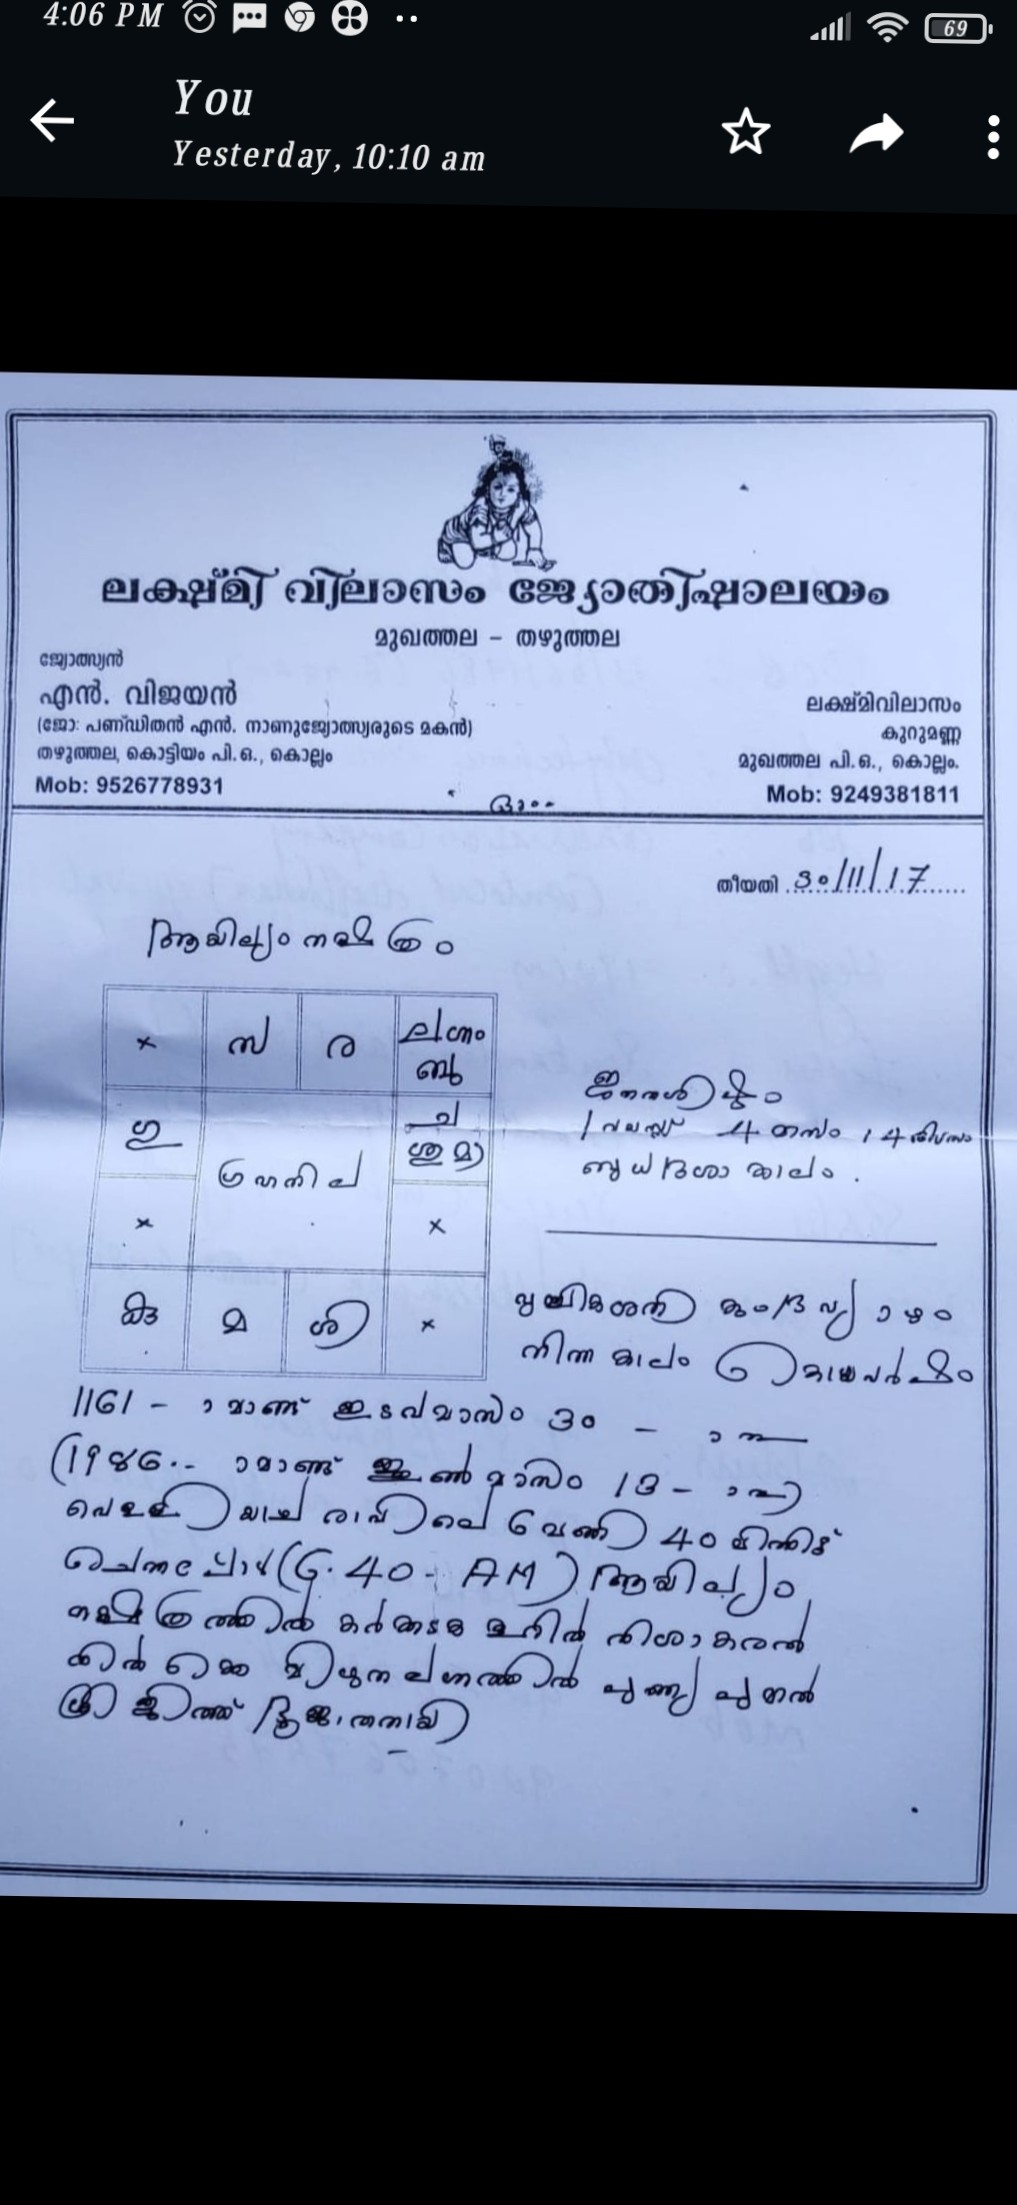 4:06 PM
69
You
Yesterday, 10:10 am
ലക്ഷ്മി വിലാസം ജ്യോതിഷാലയം
മുഖത്തല – തഴുത്തല
ജ്യോത്സ്യൻ
എൻ. വിജയൻ
(ജ്യോ: പണ്ഡിതൻ എൻ. നാണുജ്യോത്സ്യരുടെ മകൻ)
തഴുത്തല, കൊട്ടിയം പി.ഒ., കൊല്ലം
Mob: 9526778931
ലക്ഷ്മിവിലാസം
കുറുമണ്ണ
മുഖത്തല പി.ഒ., കൊല്ലം.
Mob: 9249381811
തീയതി 30/11/17
ആയില്യം നക്ഷത്രം
x സ ര ലഗ്നം ബു
ഗു ച ശു മാ
ഗ്രഹനില
x x
കു മ ശി x
ജനനശിഷ്ടം
1 വയസ്സ് 4 മാസം 14 ദിവസം
ബുധദശാകാലം.
വ്യാഴം
നിന്ന കാലം
1161 - ാമാണ്ട് ഇടവമാസം 30 - ാനു
(1986.- ാമാണ്ട് ജൂൺ മാസം 13 - ാനു)
വെള്ളിയാഴ്ച രാവിലെ 6 മണി 40 മിനിട്ട്
ചെന്നപ്പോൾ (6.40 - AM) ആയില്യം
നക്ഷത്രത്തിൽ
മിഥുന ലഗ്നത്തിൽ
ശ്രീജിത്ത്